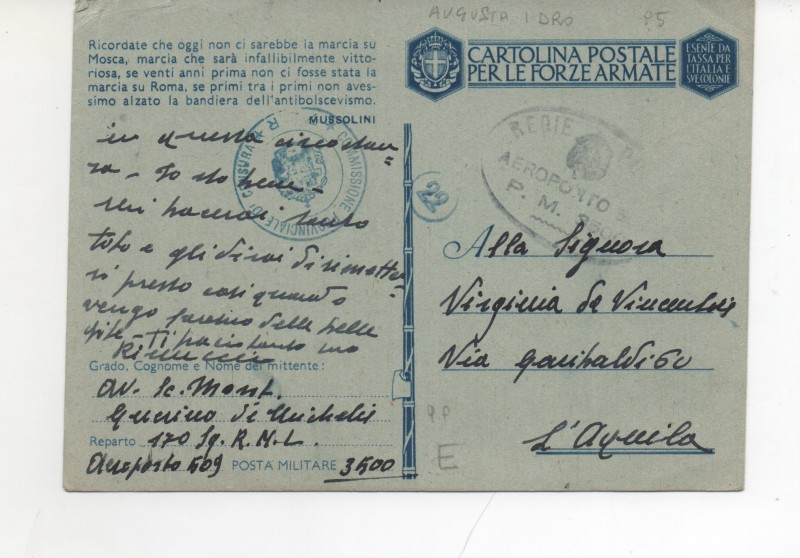 AUGUSTA IDRO P5
Ricordate che oggi non ci sarebbe la marcia su
Mosca, marcia che sarà infallibilmente vitto-
riosa, se venti anni prima non ci fosse stata la
marcia su Roma, se primi tra i primi non aves-
simo alzato la bandiera dell'antibolscevismo.
MUSSOLINI
CARTOLINA POSTALE
PER LE FORZE ARMATE
ESENTE DA
TASSA PER
L'ITALIA E
SUE COLONIE
COMMISSIONE PROVINCIALE DI CENSURA
REGIE
AEROPORTO
P. M. 3500
22
in questa circostan
za - Io sto bene -
mi bacerai tanto
Toto e gli dirai di rimetter
si presto così quando
vengo faremo delle belle
gite - Ti bacio tanto tuo
Grado, Cognome e Nome del mittente:
Av. Sc. Mont.
Guerino de Michelis
Reparto 170 Sq. R.M.L.
Aeroporto 509 POSTA MILITARE 3500
Alla Signora
Virginia de Vincentiis
Via Garibaldi 60
L'Aquila
E